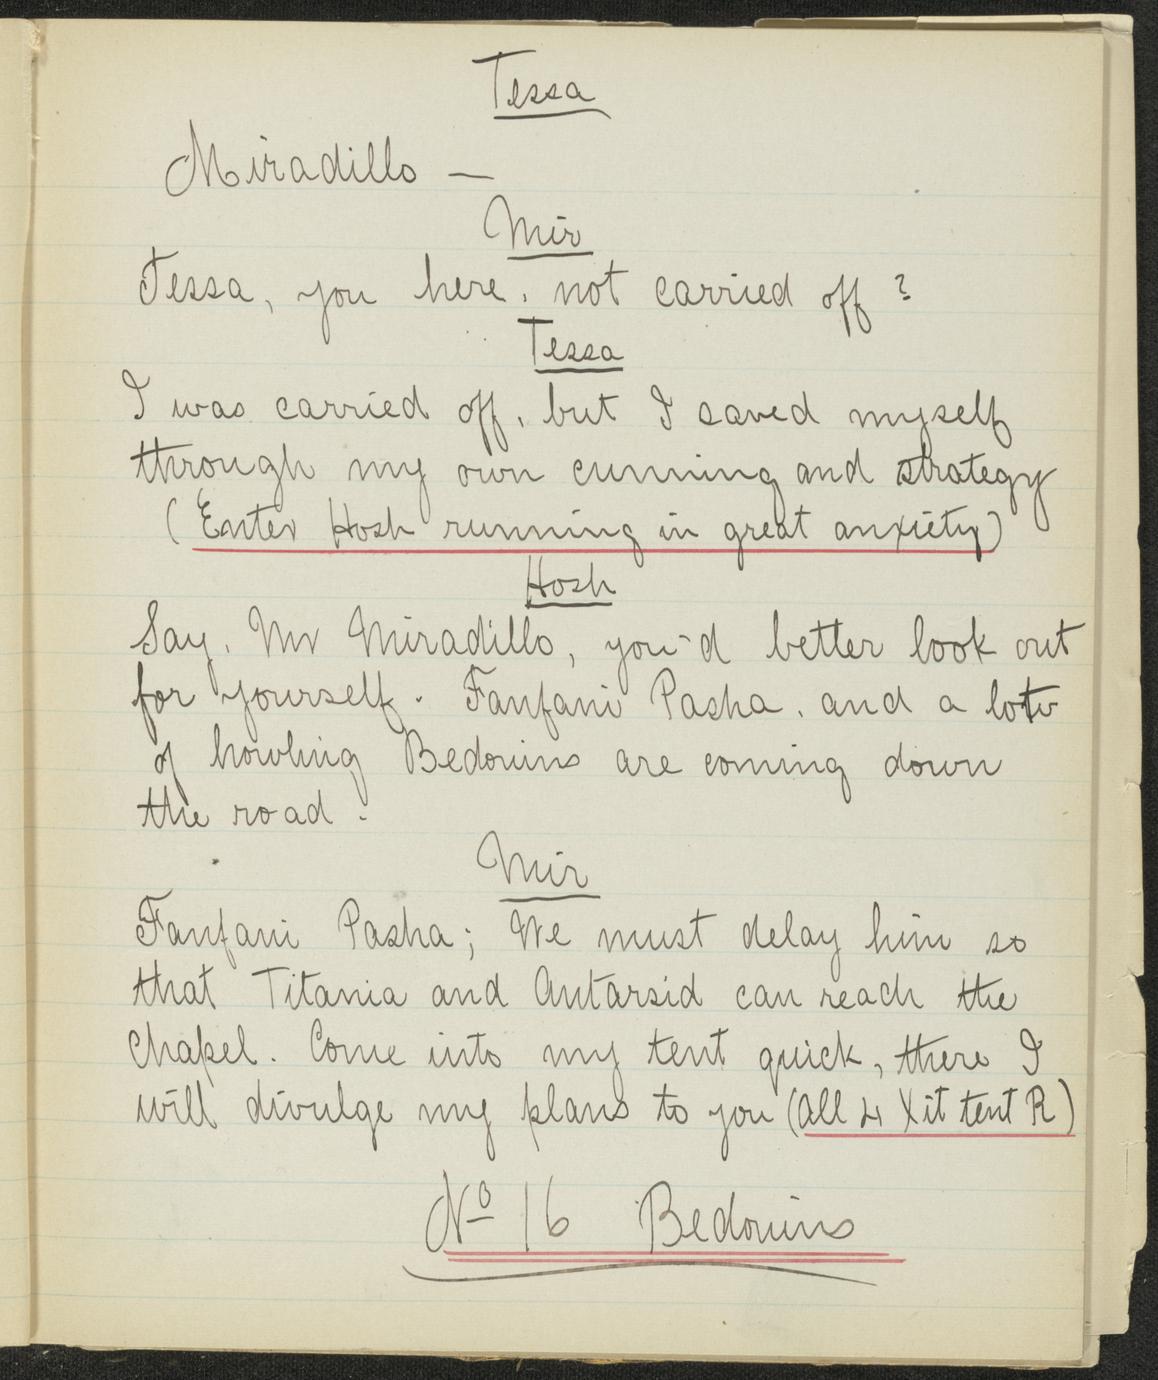 Tessa
Miradillo —
Mir
Tessa, you here, not carried off?
Tessa
I was carried off, but I saved myself
through my own cunning and strategy
(Enter Hosh running in great anxiety)
Hosh
Say, Mr Miradillo, you'd better look out
for yourself. Fanfani Pasha, and a
of howling Bedouins are coming down
the road.
Mir
Fanfani Pasha; We must delay him so
that Titania and Antarsid can reach the
Chapel. Come into my tent quick, there I
will divulge my plans to you (All 4 Xit tent R)
No 16 Bedouins